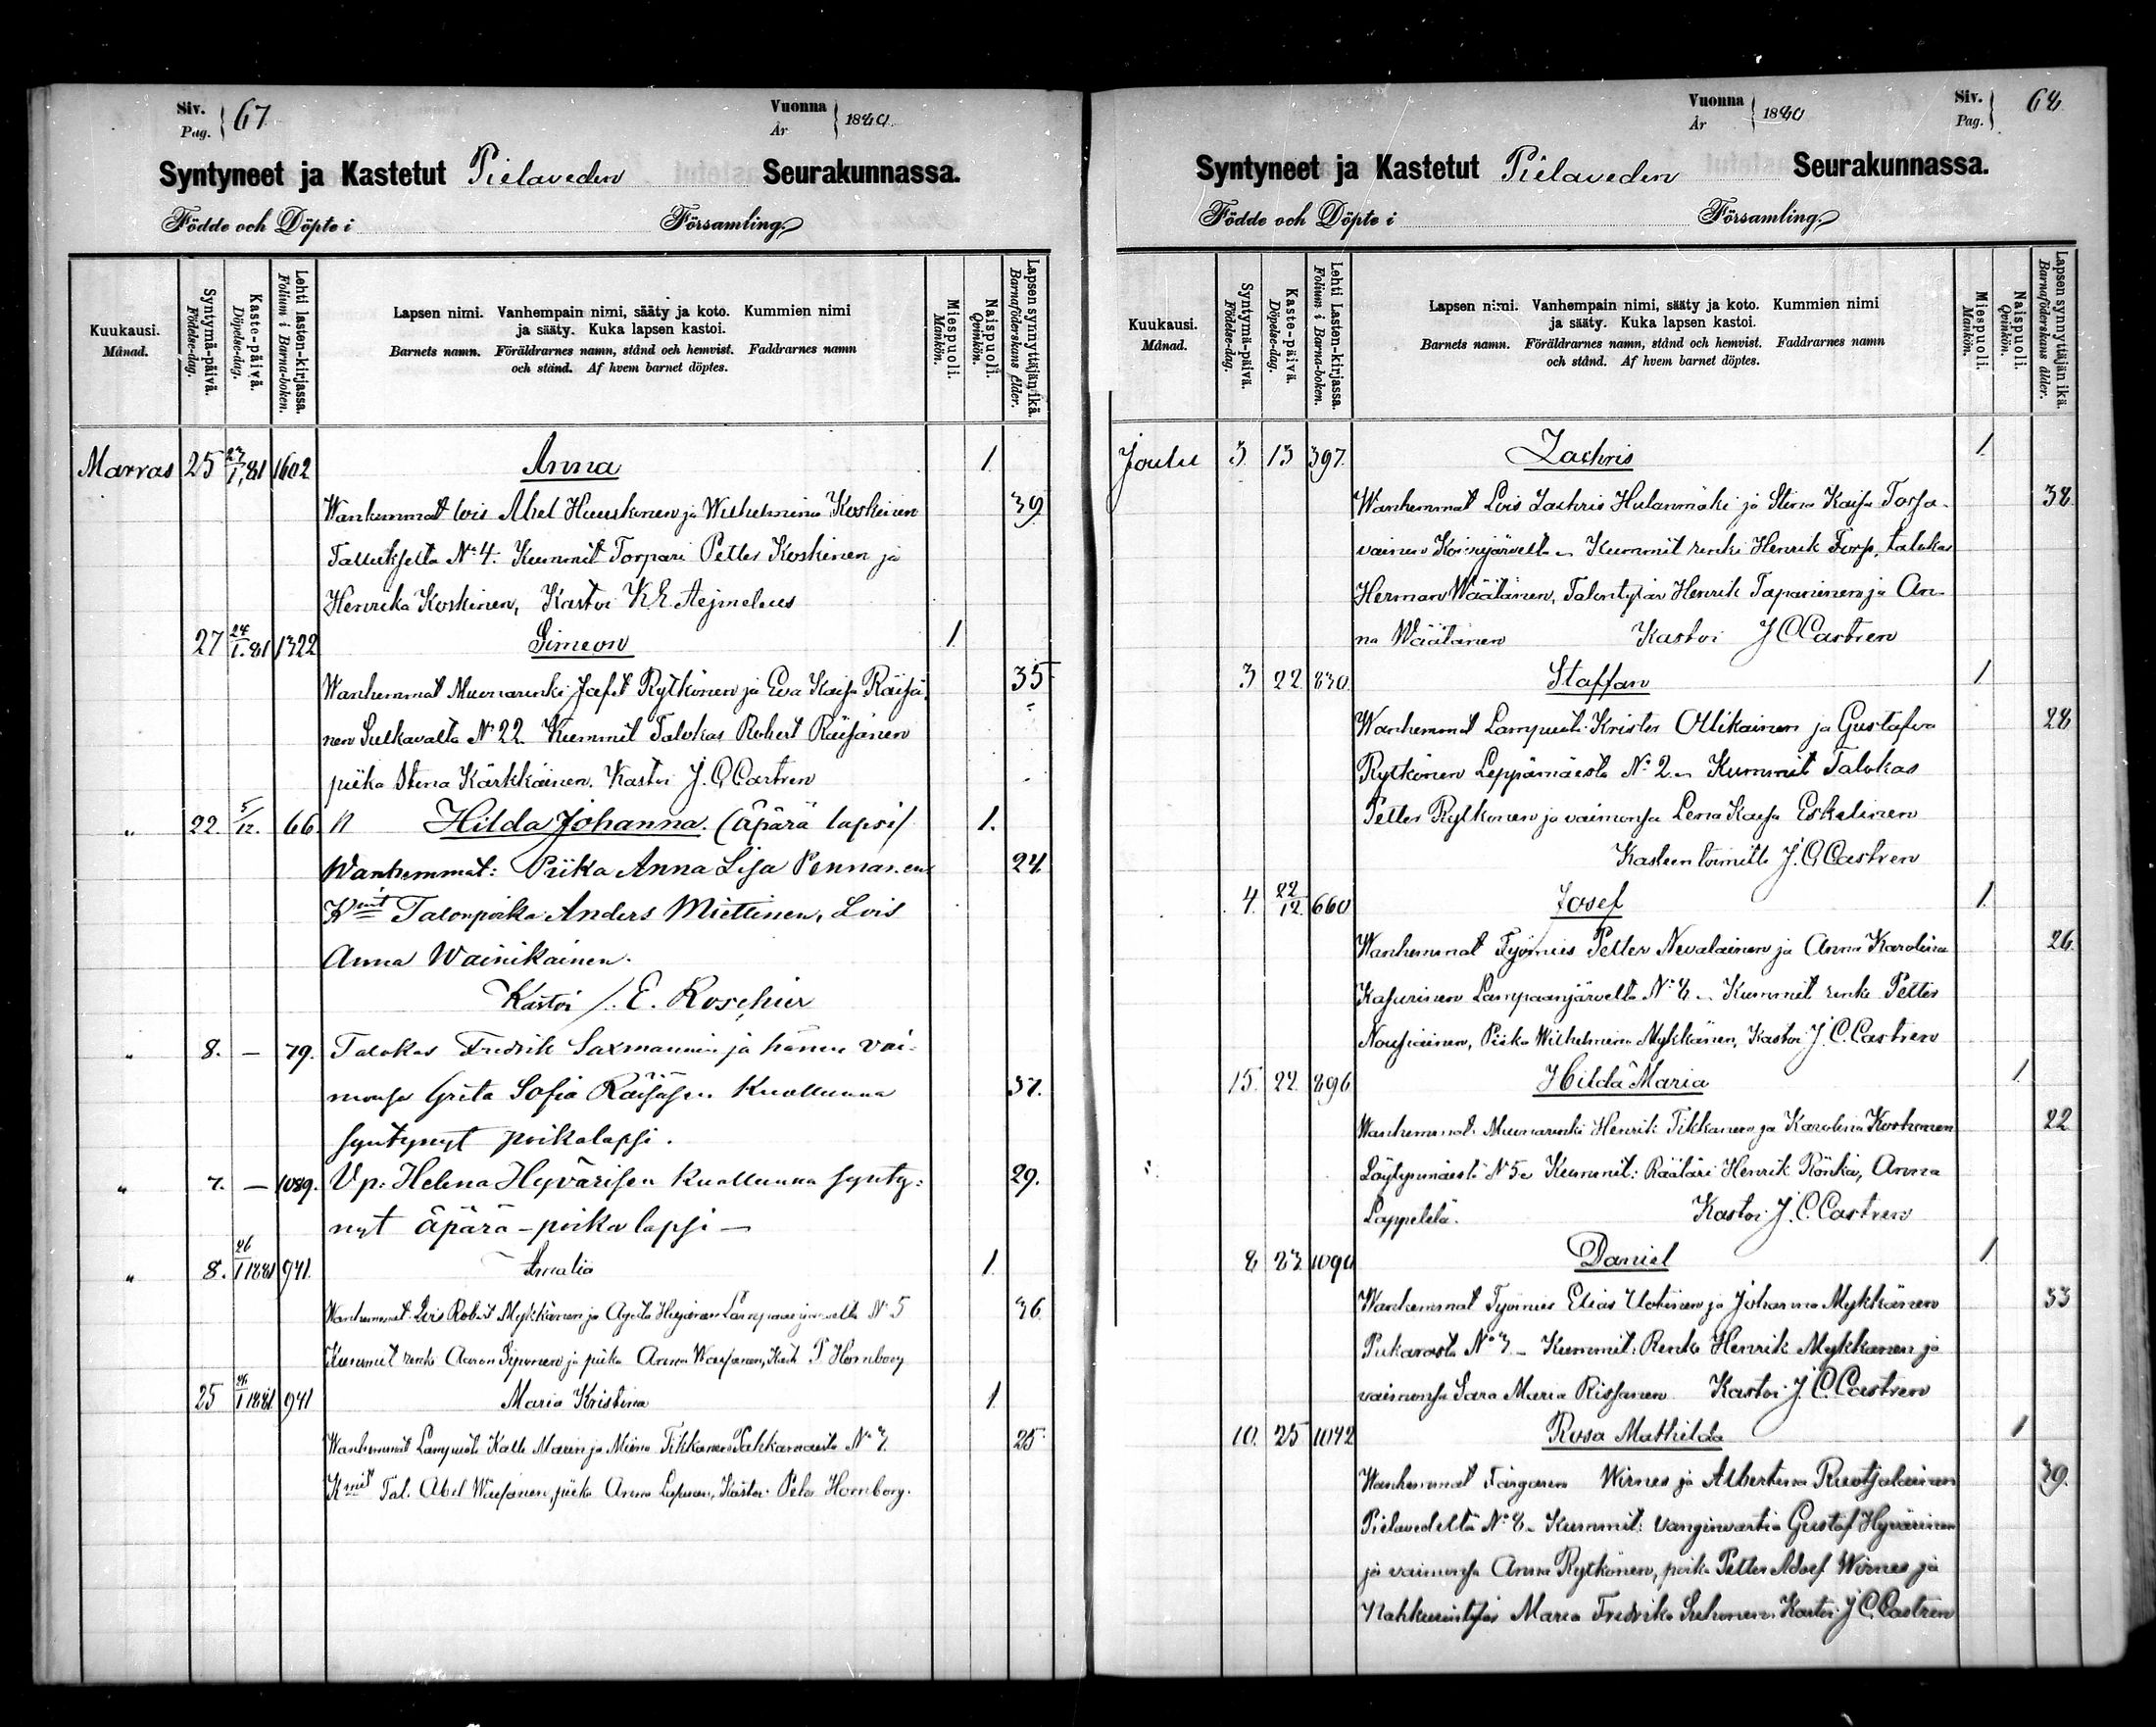 Siv. Pag. 67
Vuonna År 1880.
Syntyneet ja Kastetut Pielaveden Seurakunnassa.
Födde och Döpte i Församling.
Kuukausi. Månad.
Syntymä-päivä. Födelse-dag.
Kaste-päivä. Döpelse-dag.
Lehti lasten-kirjassa. Folium i Barna-boken.
Lapsen nimi. Vanhempain nimi, sääty ja koto. Kummien nimi
ja sääty. Kuka lapsen kastoi.
Barnets namn. Föräldrarnes namn, stånd och hemvist. Faddrarnes namn
och stånd. Af hvem barnet döptes.
Miespuoli. Mankön.
Naispuoli. Qvinkön.
Lapsen synnyttäjän ikä. Barnaföderskans ålder.
Marras 25 23/1,81 1602 Anna 1
Wanhemmat lois Abel Huuskonen ja Wilhelmina Koskinen 39
No 4. Kummit Torpari Petter Koskinen ja
Henrika Koskinen, Kastoi K.E. Aejmelaeus
27 24/1.81 1322 Simeon 1.
Wanhemmat Muonarenki Jafet Rytkönen ja Eva Kaisa Räisä- 35
nen Sulkavalta No 22. Kummit Talokas Robert Räisänen
piika Stina Kärkkäinen. Kastoi J. C. Castren
" 22. 5/12. 66. Hilda Johanna. (äpärä lapsi/ 1.
Wanhemmat: Piika Anna Lisa Pennanen 24.
Kmit Talonpoika Anders Miettinen, Lois
Anna Wainikainen.
Kastoi /. E. Roschier
" 8. — 79. Talokas Fredrik Saxmannin ja hänen vai-
monsa Greta Sofia Räisäsen Kuolluuna 37.
syntynyt poikalapsi.
" 7. — 1089. Vp: Helena Hyvärisen Kuolluuna synty- 29.
nyt äpärä-poika lapsi —
" 8. 26/1 1881 941. Amalia 1.
Wanhemmat Lois Robert Mykkänen ja Agata Hyvärinen Lampaanjärveltä No 5 36.
Kummit renki Aaron Siponen ja piika Anna Waisanen, Kast. P Hornborg
25 26/1 1881 941 Maria Kristina 1.
Wanhemmat Lampuoti Kalle Marin ja Miina Tikkanen No 7. 25
Kmit Tal. Abel Wäisänen, piika Anna Kastoi Petr Hornborg.
Siv. Pag. 68
Vuonna År 1880
Syntyneet ja Kastetut Pielaveden Seurakunnassa.
Födde och Döpte i Församling.
Kuukausi. Månad.
Syntymä-päivä. Födelse-dag.
Kaste-päivä. Döpelse-dag.
Lehti Lasten-kirjassa. Folium i Barna-boken.
Lapsen nimi. Vanhempain nimi, sääty ja koto. Kummien nimi
ja sääty. Kuka lapsen kastoi.
Barnets namn. Föräldrarnes namn, stånd och hemvist. Faddrarnes namn
och stånd. Af hvem barnet döptes.
Miespuoli. Mankön.
Naispuoli. Qvinkön.
Lapsen synnyttäjän ikä. Barnaföderskans ålder.
Joulu 3 13 397. Zachris 1.
Wanhemmat Lois Zachris Hulanmäki ja Stina Kaisa 38.
Koivujärveltä - Kummit renki Henrik talokas
Herman Wäätänen, Talontytär Henrik Tapaninen ja An-
na Wäätänen Kastoi J C Castren
3 22 830 Staffan 1
Wanhemmat Lampuoti Krister Ollikainen ja Gustafva 28
Rytkönen Leppämäestä No 2. - Kummit Talokas
Petter Rytkönen ja vaimonsa Lena Kaisa Eskelinen
Kasteen toimitti J. C. Castren
4. 22/12. 660 Josef 1.
Wanhemmat Työmies Petter Nevalainen ja Anna Karolina 26.
Kasurinen Lampaanjärveltä No 8. - Kummit renki Petter
Nousiainen, Piika Wilhelmina Mykkänen, Kastoi J. C. Castren
15. 22. 896 Hilda Maria 1.
Wanhemmat. Muonarenki Henrik Tikkanen ja Karolina Korhonen 22
Löytynmäestä No 5. Kummit: Räätäri Henrik Rönkä, Anna
Lappetelä. Kastoi J. C. Castren
8 23 1090 Daniel 1
Wanhemmat Työmies Elias Uotinen ja Johanna Mykkänen 33
Pukarasta No 3 - Kummit: Renki Henrik Mykkänen ja
vaimonsa Sara Maria Rissanen Kastoi J. C. Castren
10. 25 1042 Rosa Mathilda 1
Wanhemmat Färgaren Wirnes ja Albertina Ruotsalainen 39.
Pielavedeltä No 8 - Kummit: Vanginvartia Gustaf Hyvärinen
ja vaimonsa Anna Rytkönen, poika Petter Adolf Wirnes ja
Maria Fredrika Suhonen. Kastoi J C. Castren